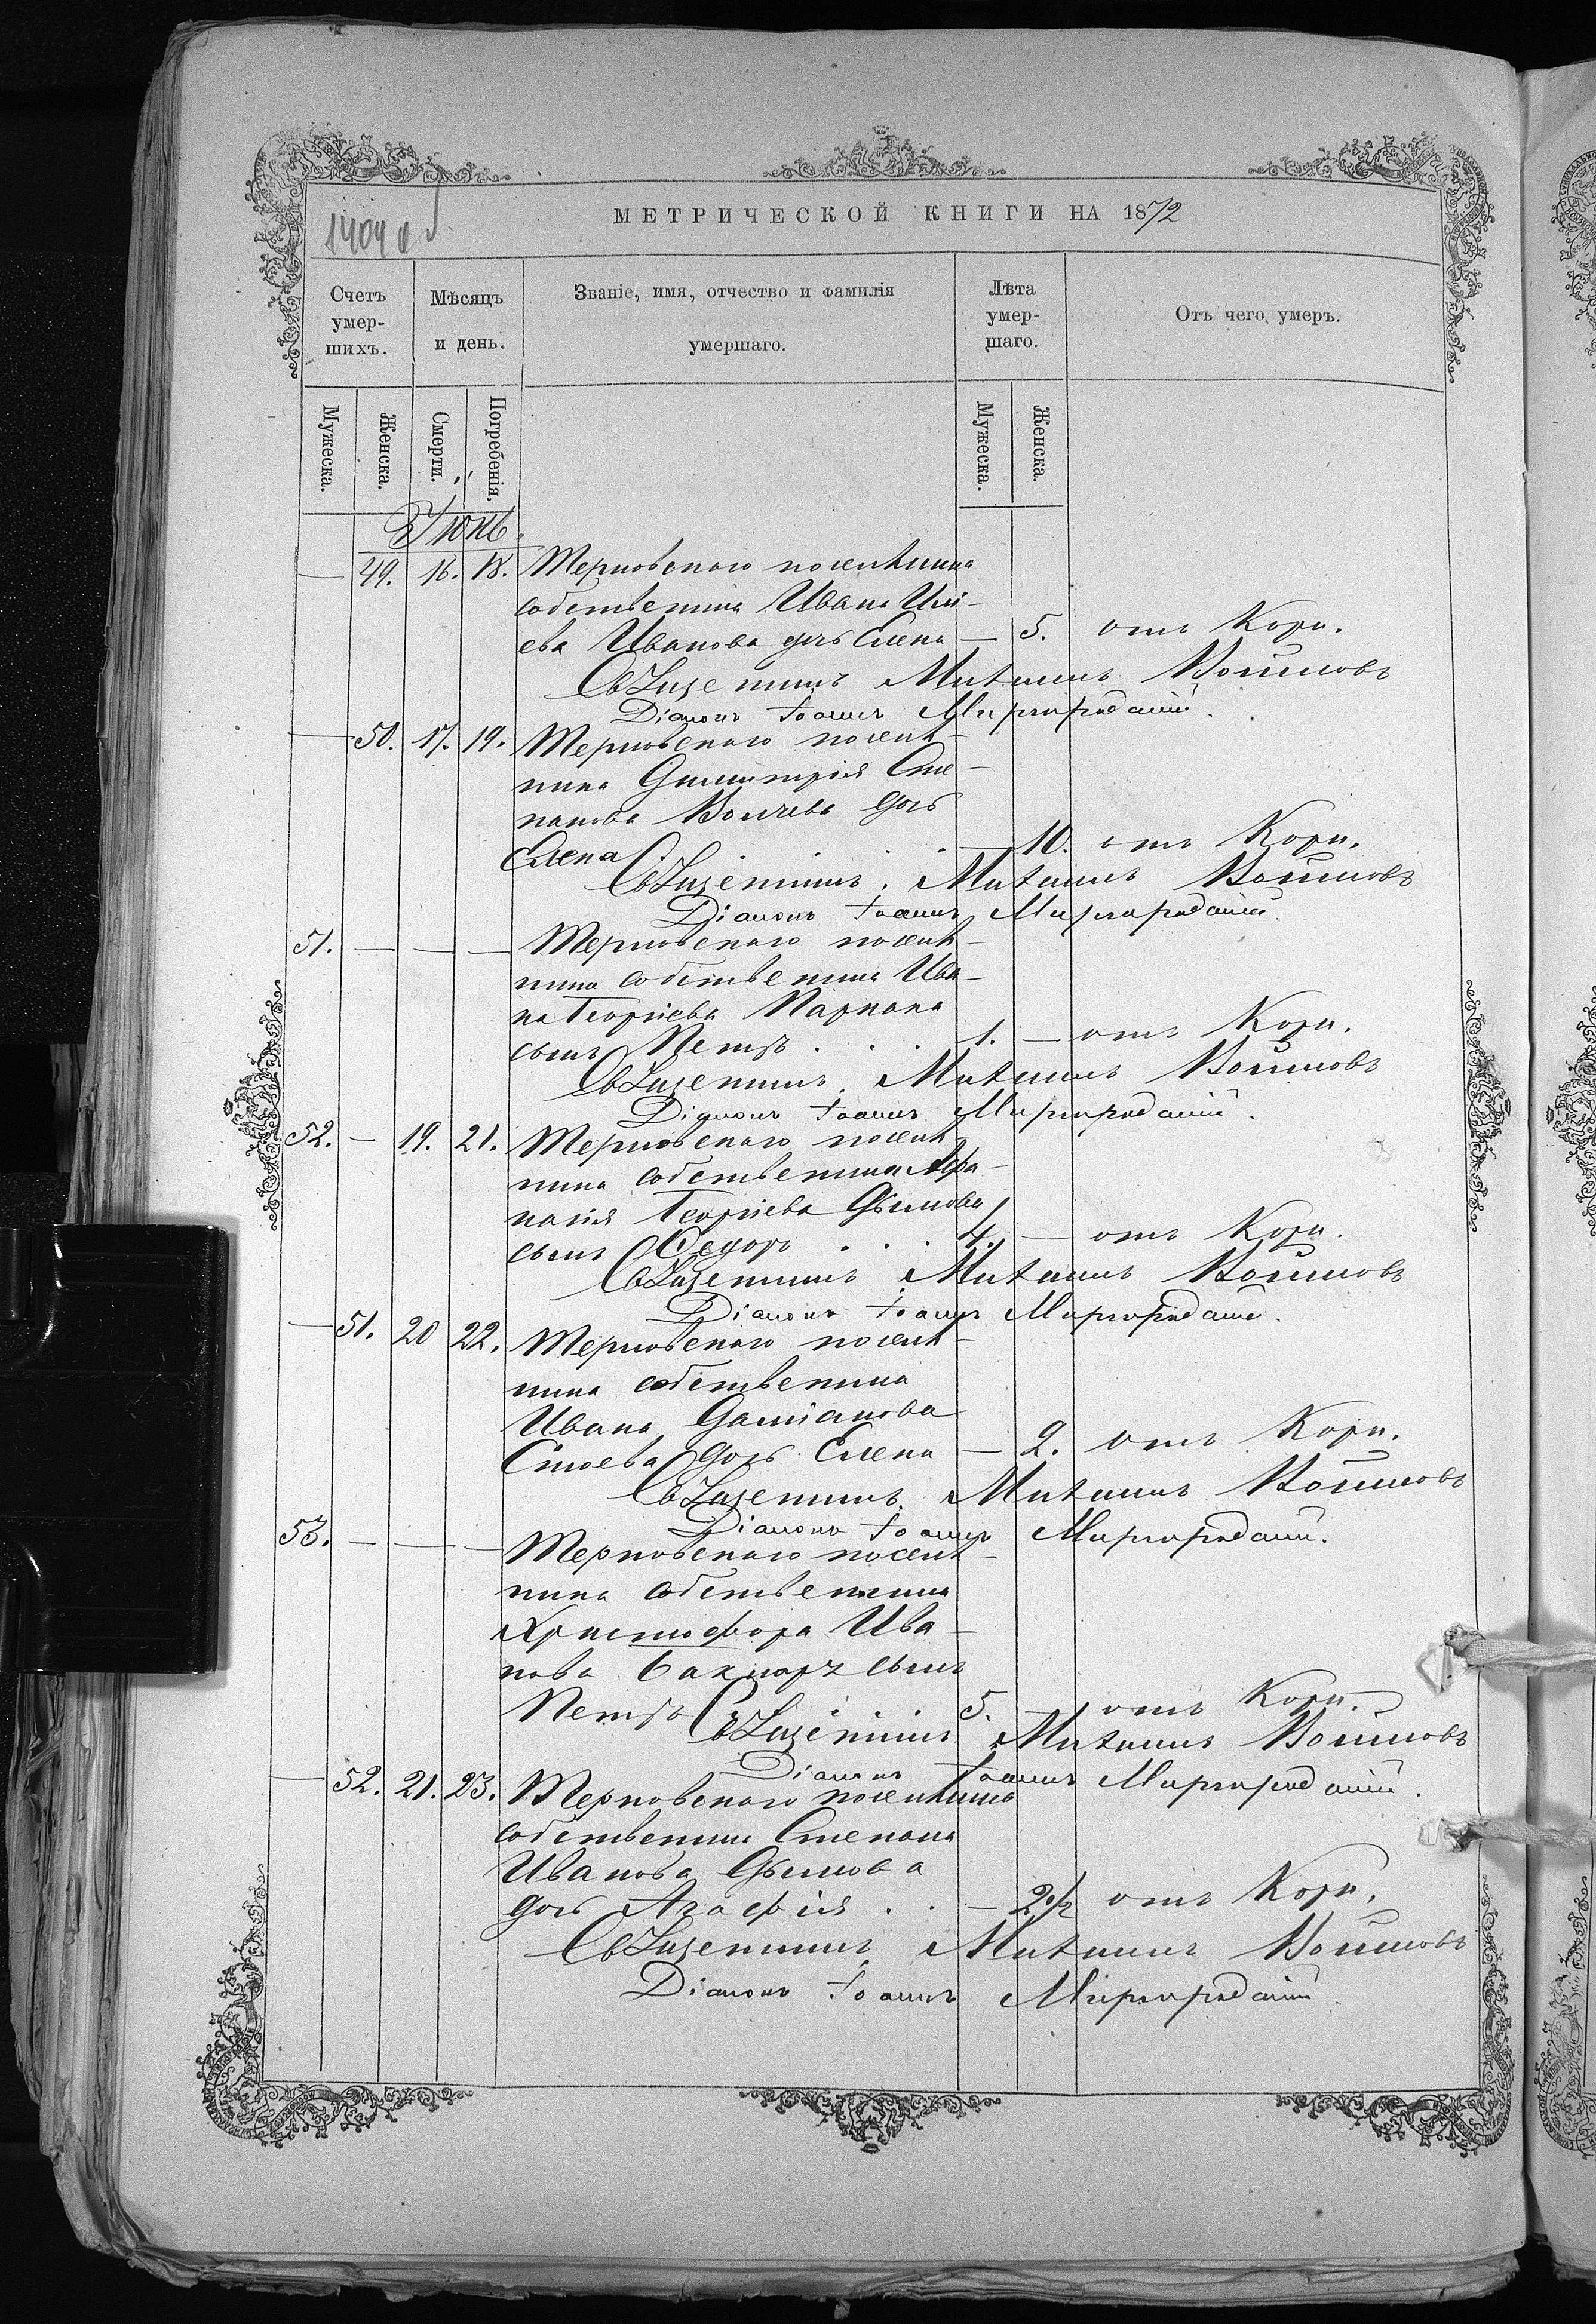 1404 об
МЕТРИЧЕСКОЙ КНИГИ НА 1872
Счетъ умер-шихъ.
Мѣсяцъ и день.
Званіе, имя, отчество и фамилія умершаго.
Лѣта умер-шаго.
Отъ чего умеръ.
Мужеска.
Женска.
Смерти.
Погребенія.
Мужеска.
Женска.
Іюнь.
— 49. 16. 18. Терновскаго поселянина
собственника Ивана Или-
ева Иванова дочь Елена — 5. отъ Кори.
Священникъ Михаилъ Войновъ
Діаконъ Іоаннъ Миргородскій.
— 50. 17. 19. Терновскаго поселя-
нина Димитрія Сте-
панова Волчева дочь
Елена . . . — 10. отъ Кори.
Священникъ Михаилъ Войновъ
Діаконъ Іоаннъ Миргородскій.
51. — — — Терновскаго поселя-
нина собственника Ива-
на Георгіева Паркана
сынъ Петръ . . . 1. — отъ Кори.
Священникъ Михаилъ Войновъ
Діаконъ Іоаннъ Миргородскій.
52. — 19. 21. Терновскаго поселя-
нина собственника Афа-
насія Георгіева Дымова
сынъ Ѳедоръ . . . 4. — отъ Кори.
Священникъ Михаилъ Войновъ
Діаконъ Іоаннъ Миргородскій.
— 51. 20 22. Терновскаго поселя-
нина собственника
Ивана Даміанова
Стоева дочь Елена — 2. отъ Кори.
Священникъ Михаилъ Войновъ
Діаконъ Іоаннъ Миргородскій.
53. — — — Терновскаго поселя-
нина собственника
Христофора Ива-
нова сынъ
Петръ . . . 5. — отъ Кори.
Священникъ Михаилъ Войновъ
Діаконъ Іоаннъ Миргородскій.
— 52. 21. 23. Терновскаго поселянина
собственника Степана
Иванова Дымова
дочь Агафія . . — 2 1/2 отъ Кори.
Священникъ Михаилъ Войновъ
Діаконъ Іоаннъ Миргородскій